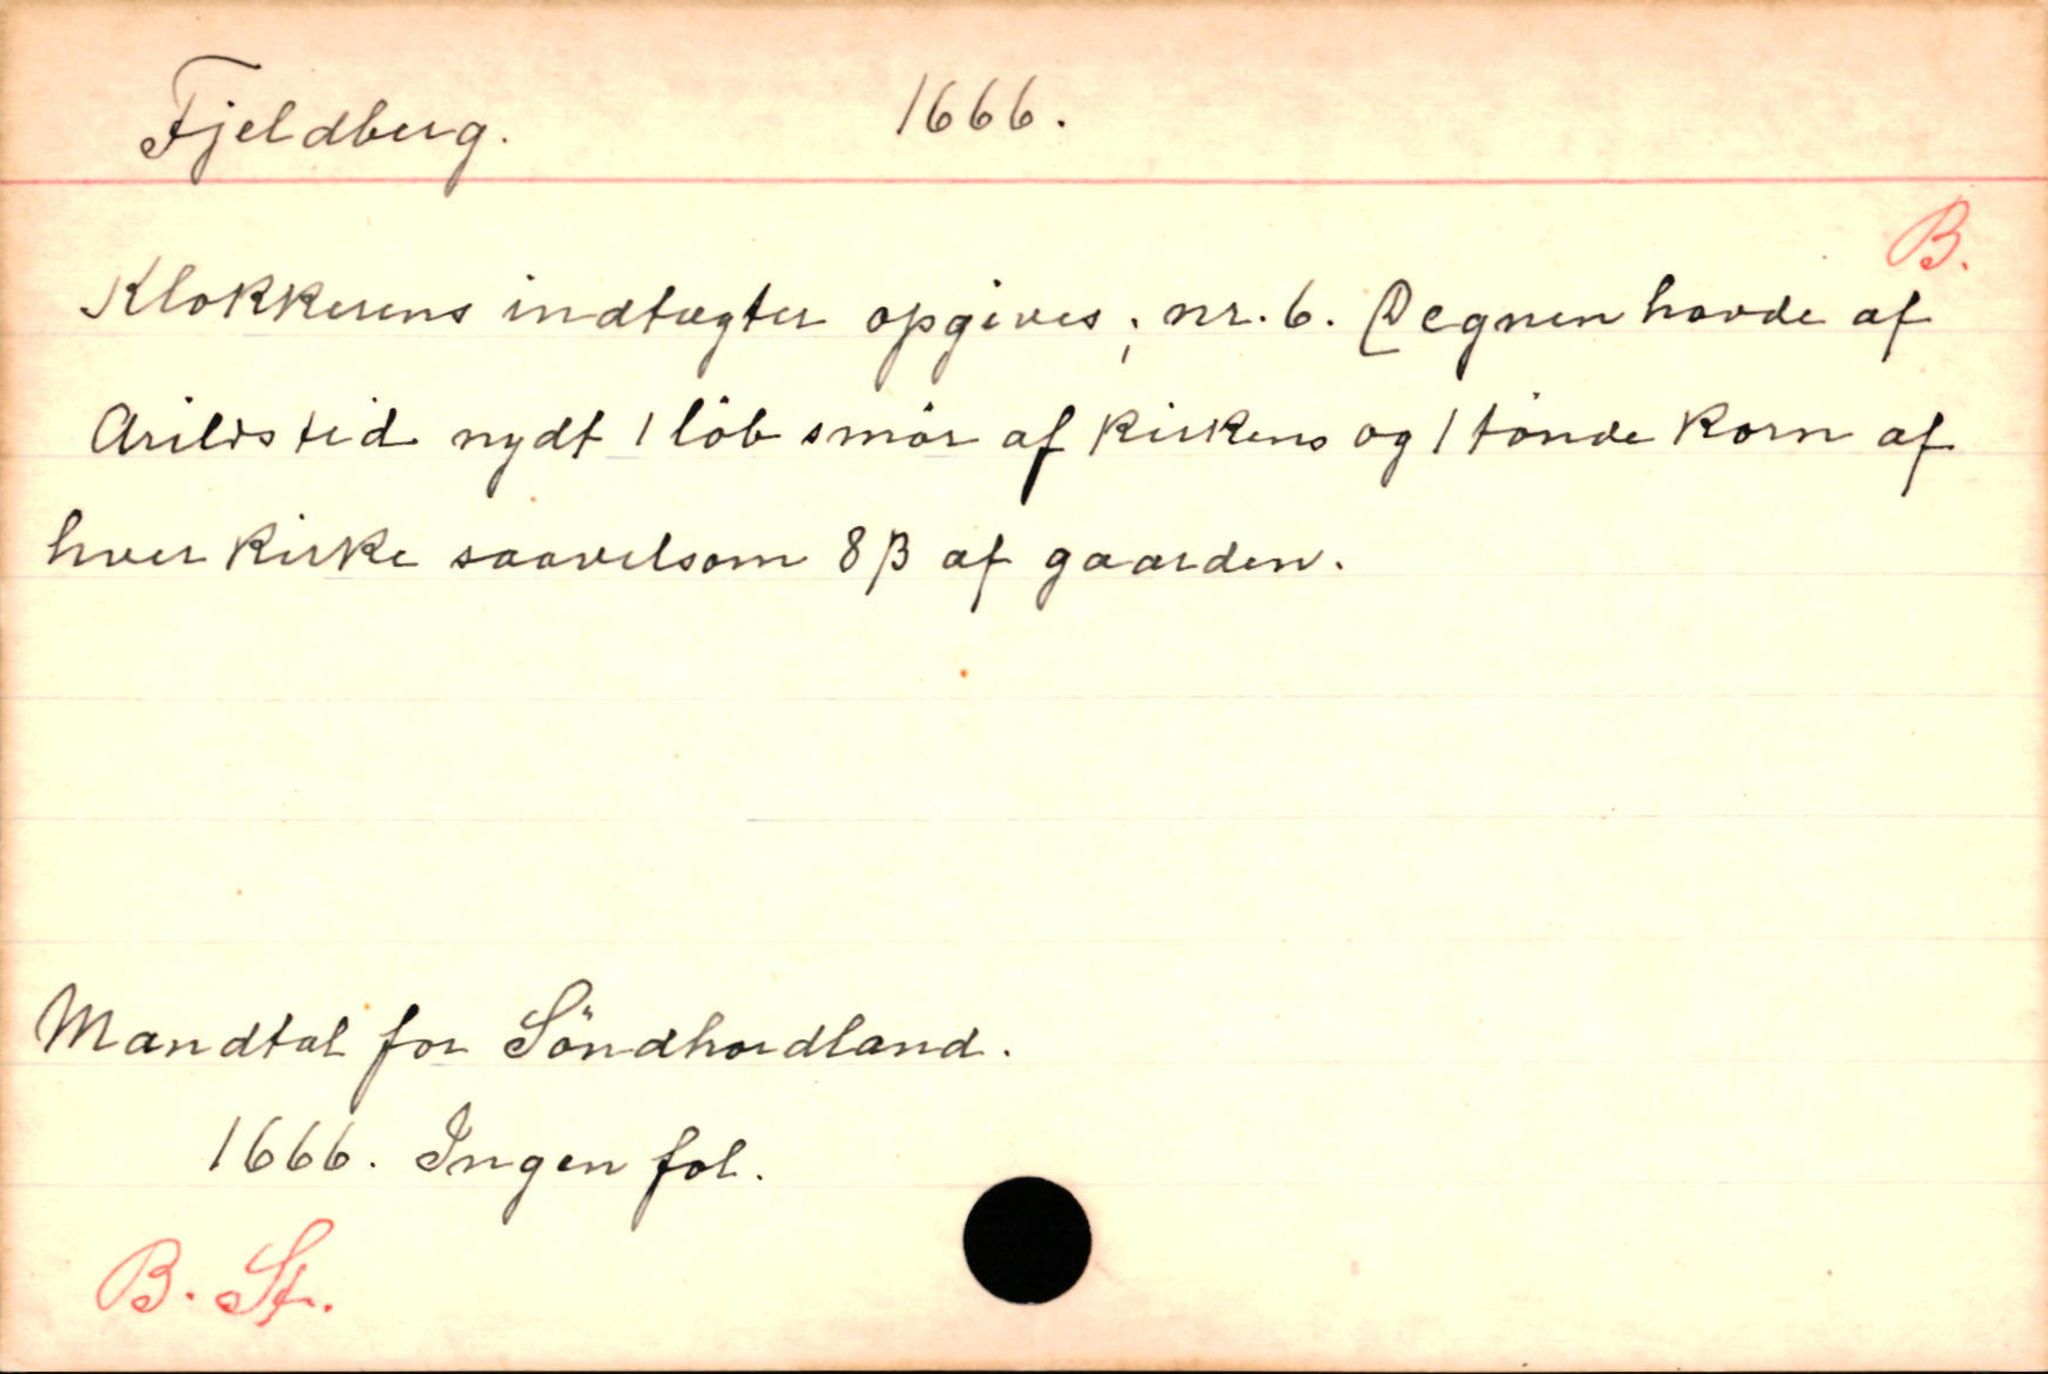 Fjeldberg. 1666.
B.
Klokkerens indtægter opgives; nr. 6. Degnen havde af
Arildstid nydt 1 löb smör af kirkens og 1 tönde korn af
hver kirke saavelsom 8 β af gaarden.
Mandtal for Söndhordland.
1666. Ingen fol.
B. St.